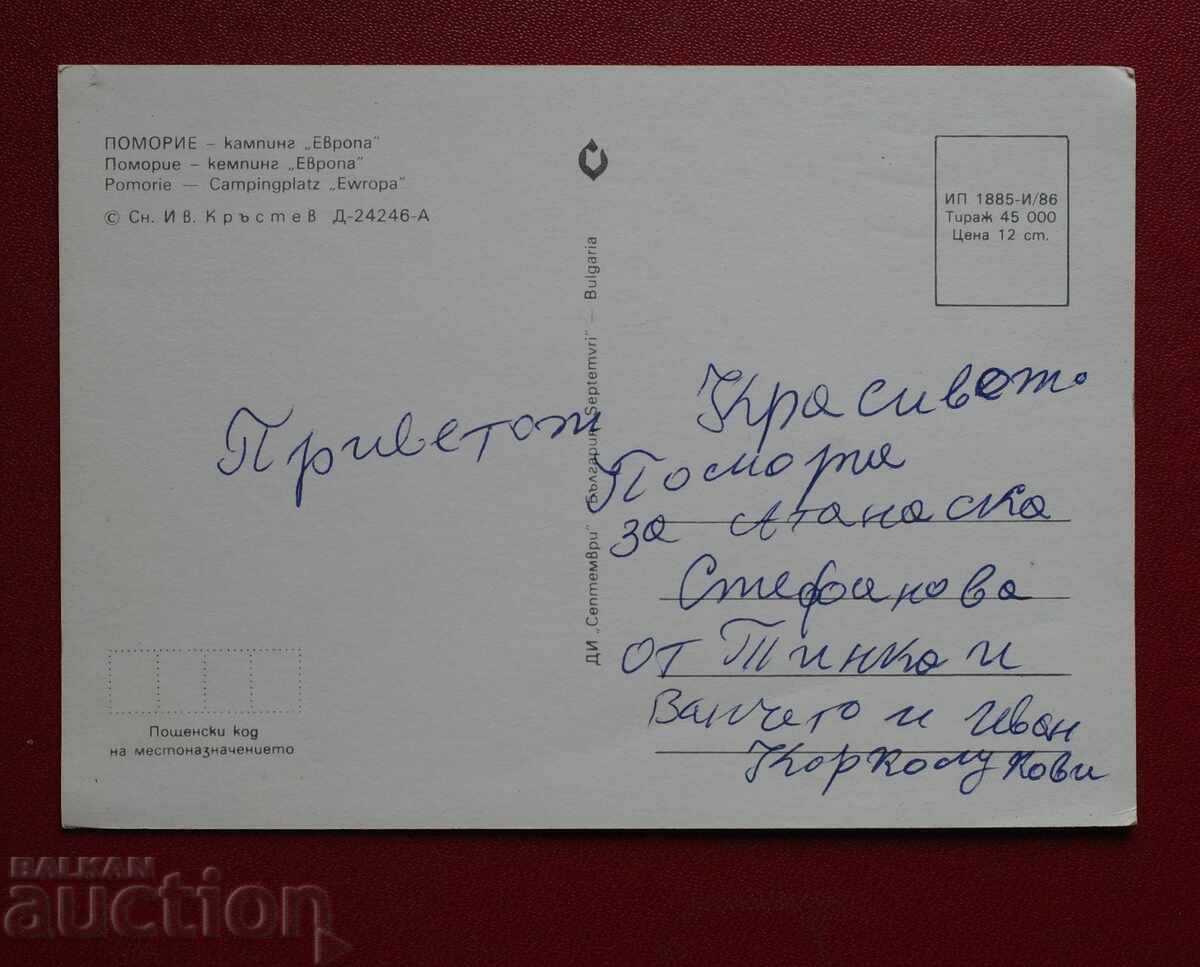 ПОМОРИЕ – кампинг „Европа"
Поморие – кемпинг „Европа"
Pomorie — Campingplatz „Ewropa"
© Сн. Ив. Кръстев Д-24246-А
ИП 1885-И/86
Тираж 45 000
Цена 12 ст.
ДИ „Септември" България „Septemvri" — Bulgaria
Приветот Красивото
Поморие
за Атанаска
Стефанова
от Тинка и
Ванчето и Иван
Корколукови
Пощенски код
на местоназначението
BALKAN
auction